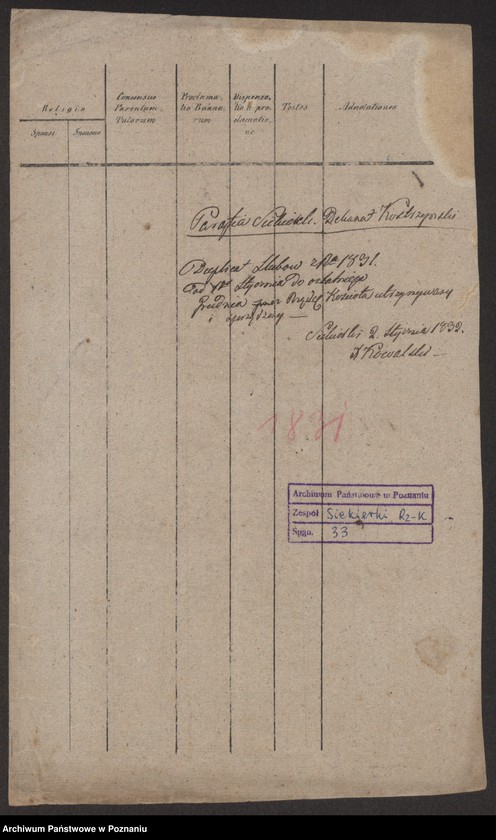 Religio
Sponsi
Sponsae
Consensus
Parentum,
Tutorum
Proclama-
tio Banno-
rum
Dispensa-
tio
pro-
clamatio-
ne
Testes
Adnotationes
Parafia Siekierki. Dekanat Kostrzynski
Duplicat Slubow z Ru 1831.
Od 1go Stycznia do ostatniego
Grudnia przez Kościoła utrzymywany
i
Siekierki 2. Stycznia 1832.
Kowalski
1831
Archiwum Państwowe w Poznaniu
Zespół Siekierki Rz-K
Sygn. 33
Archiwum Państwowe w Poznaniu